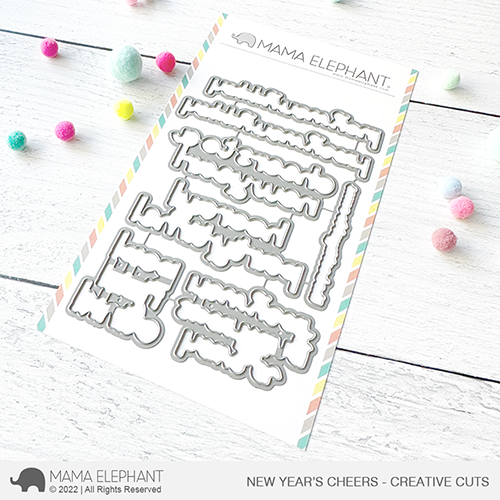 MAMA ELEPHANT
MAMA ELEPHANT
© 2022 | All Rights Reserved
NEW YEAR'S CHEERS - CREATIVE CUTS